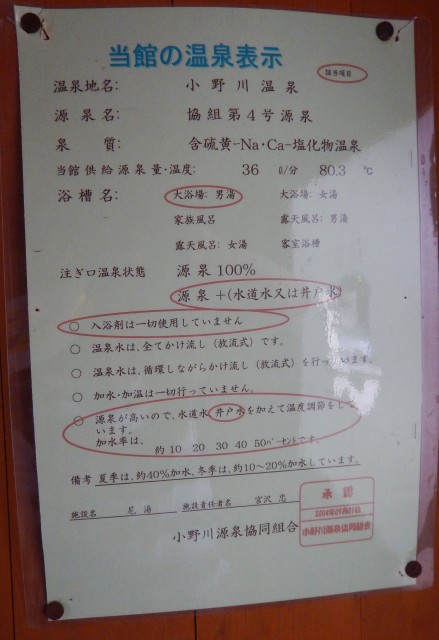 当館の温泉表示
該当項目
温泉地名: 小野川温泉
源泉名: 協組第4号源泉
泉質: 含硫黄-Na・Ca-塩化物温泉
当館供給源泉量・温度: 36 ℓ/分 80.3 ℃
浴槽名: 大浴場: 男湯 大浴場: 女湯
家族風呂 露天風呂: 男湯
露天風呂: 女湯 客室浴槽
注ぎ口温泉状態 源泉100%
源泉+(水道水又は井戸水)
○ 入浴剤は一切使用していません
○ 温泉水は、全てかけ流し(放流式)です。
○ 温泉水は、循環しながらかけ流し(放流式)を行っています。
○ 加水・加温は一切行っていません。
○ 源泉が高いので、水道水 井戸水を加えて温度調節をして
います。
加水率は、 約10 20 30 40 50パーセントです。
備考 夏季は、約40%加水、冬季は、約10~20%加水しています。
施設名 尼湯 施設責任者名 宮沢
小野川源泉協同組合
承認
小野川温泉協同組合